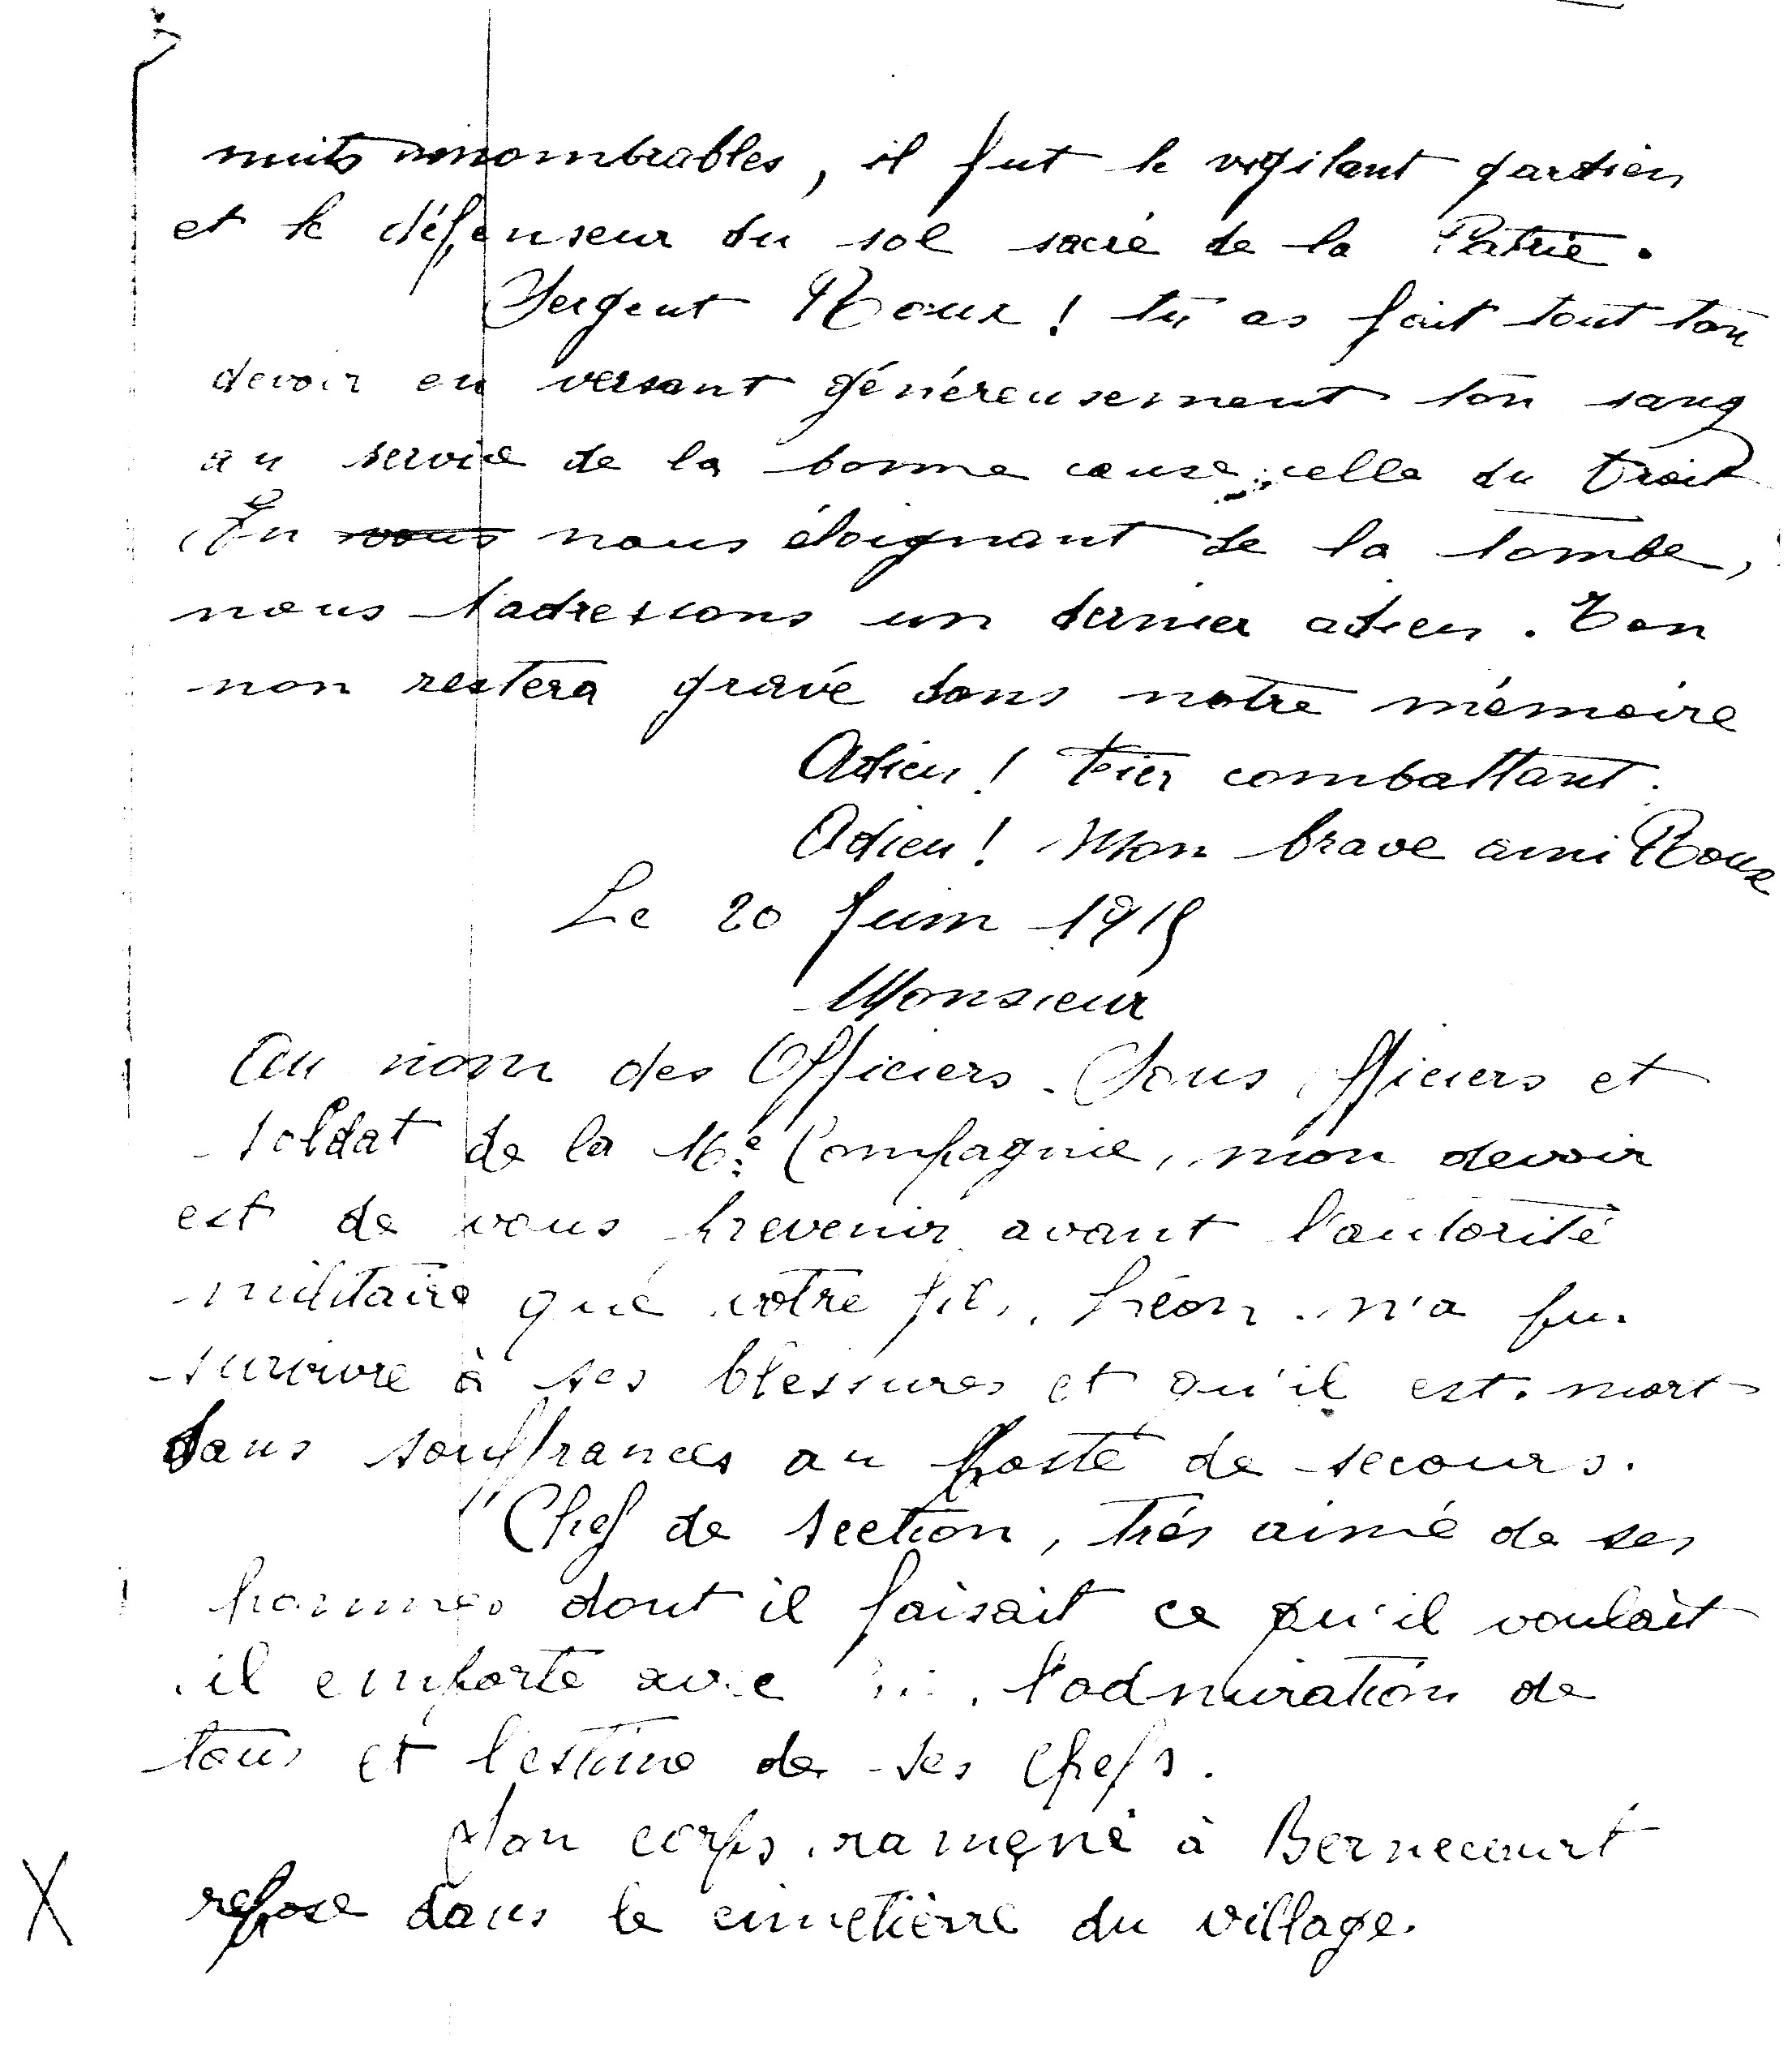 nuits innombrables, il fut le vigilant gardien
et le défenseur du sol sacré de la Patrie.
Sergent Roux ! tu as fait tout ton
devoir en versant généreusement ton sang
au service de la bonne cause, celle du Droit
En vous nous éloignant de la tombe,
nous t'adressons un dernier adieu. Ton
non restera gravé dans notre mémoire
Adieu ! Fier combattant.
Adieu ! Mon brave ami Roux
Le 20 Juin 1915
Monsieur
Au nom des Officiers. Sous Officiers et
soldat de la 16e Compagnie, mon devoir
est de vous prevenir avant l'autorité
militaire que votre fils, Léon. n'a pu
survivre à ses blessures et qu'il est mort
sans souffrances au poste de secours.
Chef de section, très aimé de ses
hommes dont il faisait ce qu'il voulait
il emporte avec lui, l'admiration de
tous et l'estime de ses chefs.
Son corps ramené à Bernecourt
X repose dans le cimetière du village.